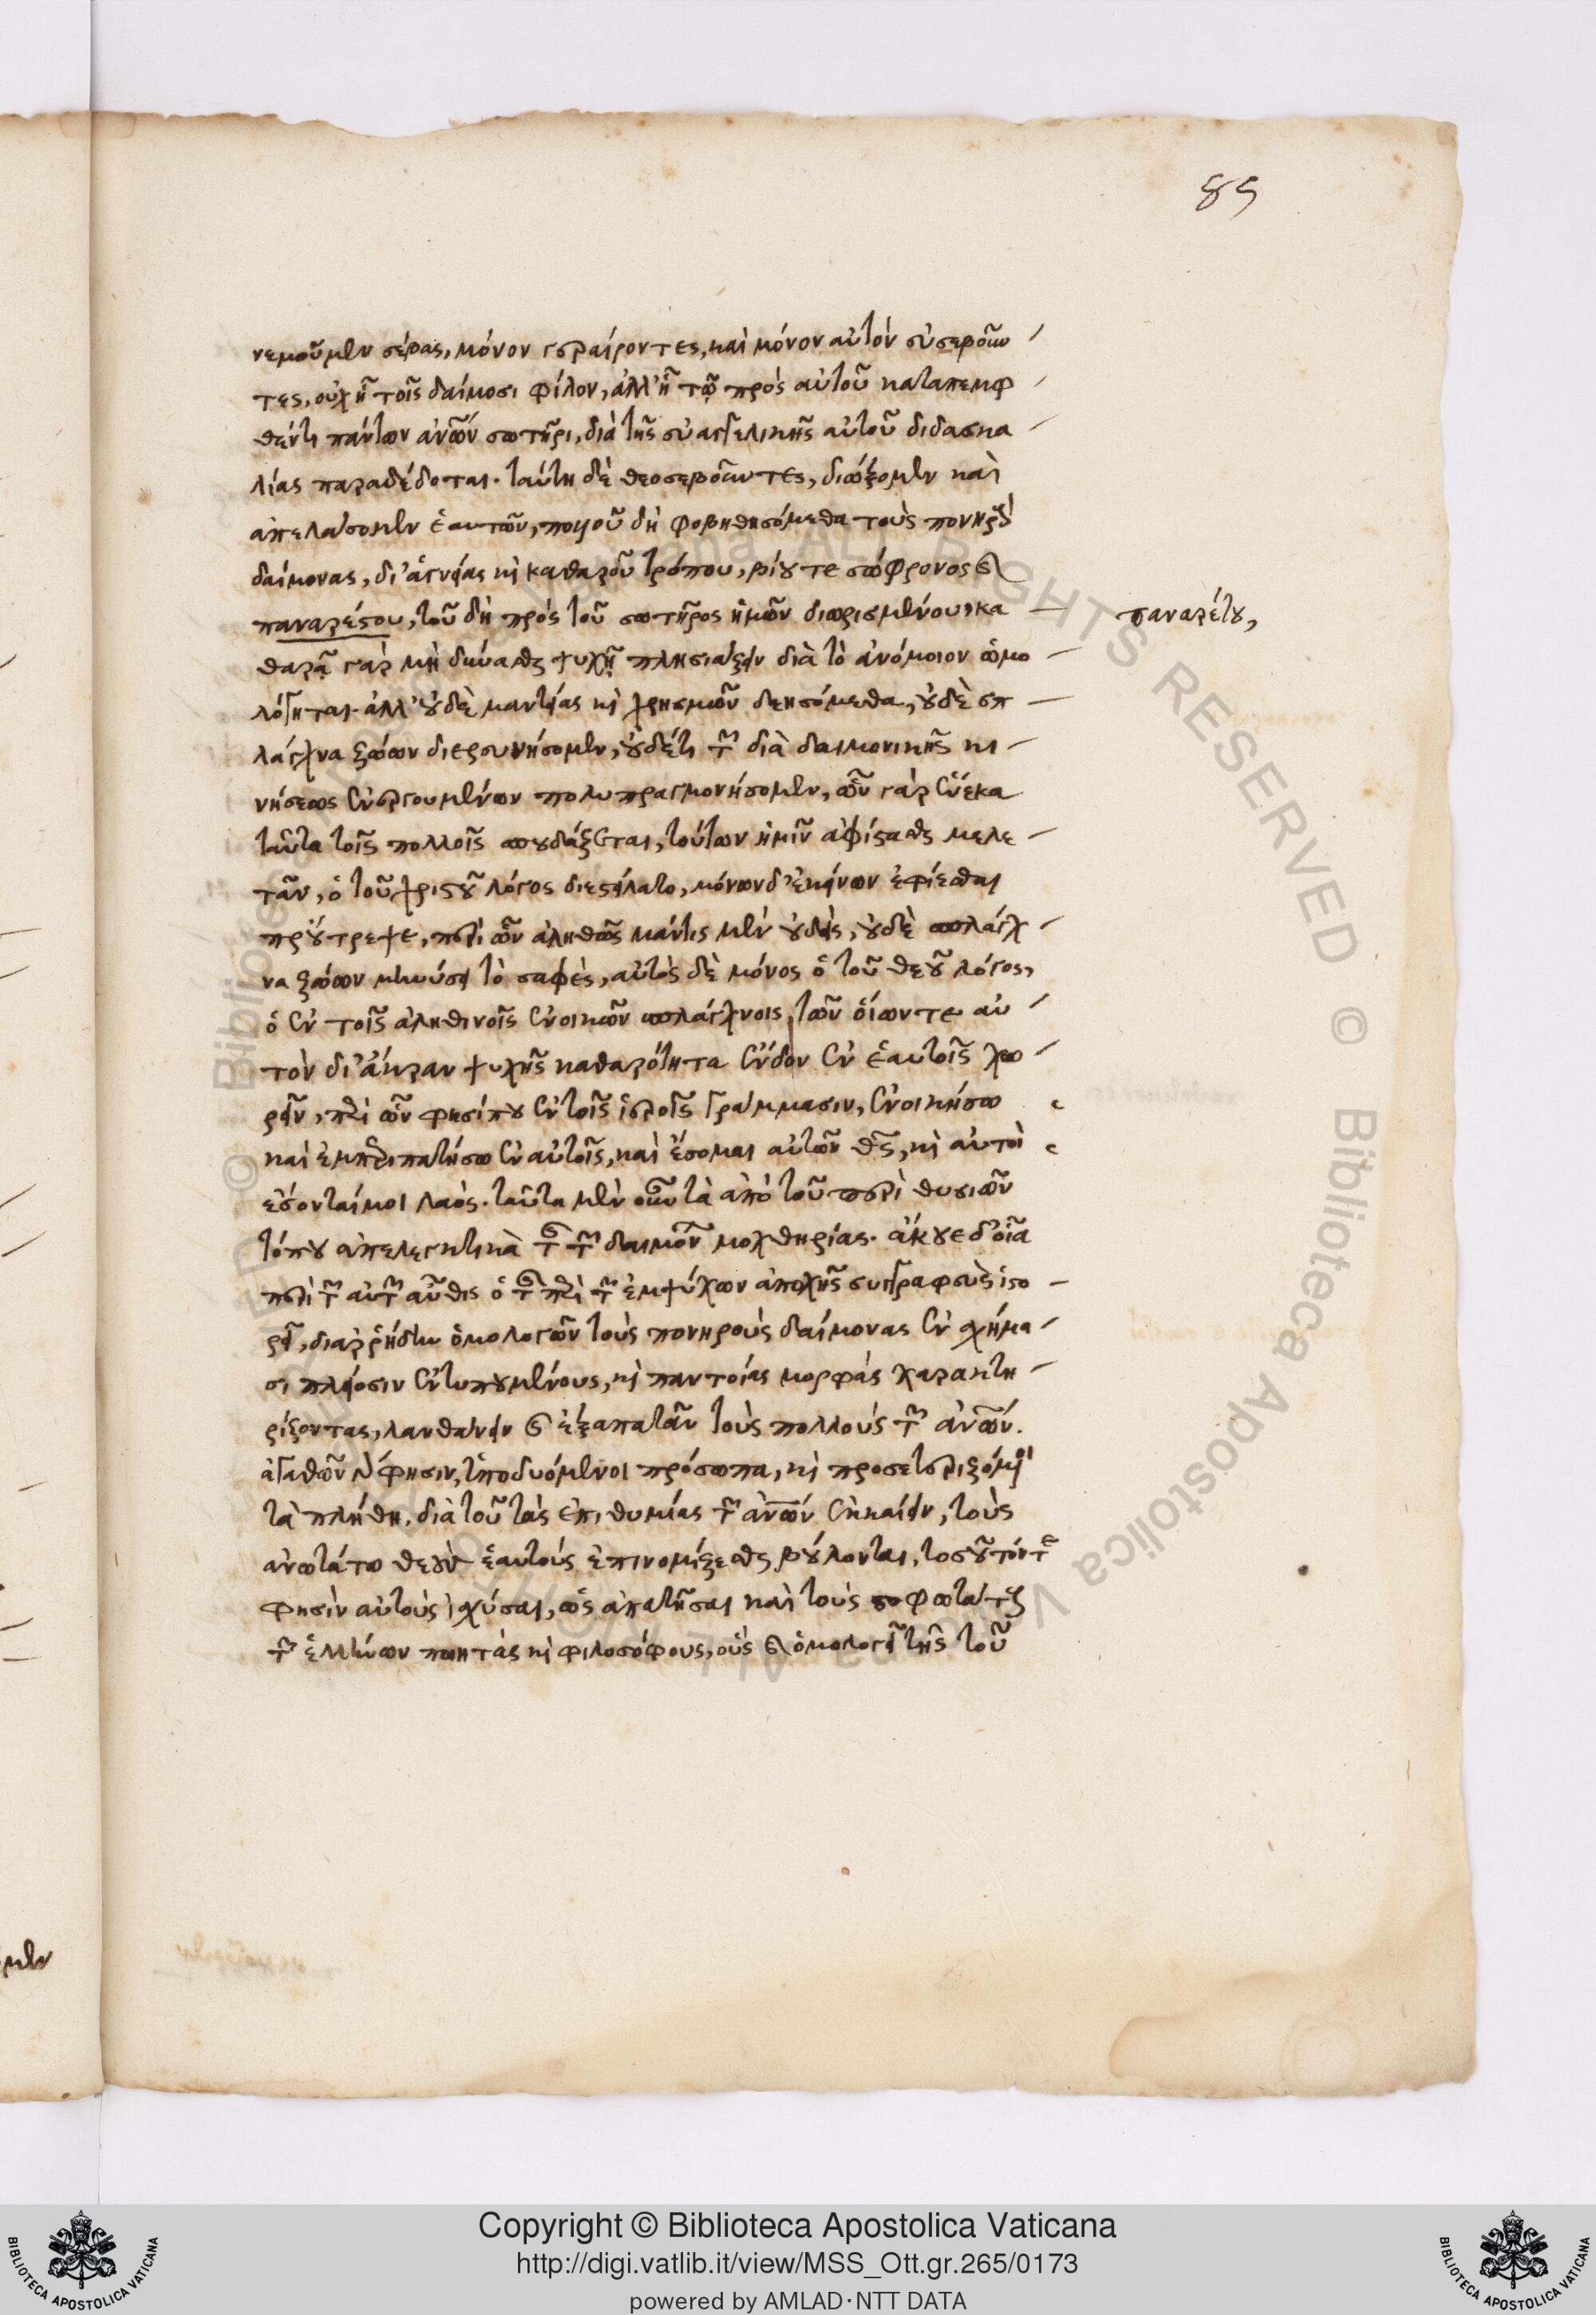 85
νεμοῦμεν σέβας, μόνον γεραίροντες, καὶ μόνον αὐτὸν εὐσεβοῦν
τες, οὐχ ᾗ τοῖς δαίμοσι φίλον, ἀλλ' ᾗ τῷ πρὸς αὐτοῦ καταπεμφ
θέντι πάντων ἀνων σωτῆρι, διὰ τῆς εὐαγγελικῆς αὐτοῦ διδασκα
λίας παραδέδοται. ταύτῃ δὲ θεοσεβοῦντες, διώξομεν καὶ
ἀπελάσομεν ἑαυτῶν, ποῦ δὴ φοβηθησόμεθα τοὺς πονηροὺς
δαίμονας, δι' ἁγνείας κὶ καθαροῦ τρόπου, βίου τε σώφρονος καὶ
παναρέτου, τοῦ δὴ πρὸς τοῦ σωτῆρος ἡμῶν διωρισμένου, κα
παναρέτου,
θαρᾷ γὰρ μὴ δύνασθαι ψυχῇ πλησιάζειν διὰ τὸ ἀνόμοιον ὡμο
λόγηται. ἀλλ' οὐδὲ μαντείας κὶ χρησμῶν δεησόμεθα, οὐδὲ σπ
λάγχνα ζώων διερευνήσομεν, οὐδέ τι τῶν διὰ δαιμονικῆς κι
νήσεως ἐνεργουμένων πολυπραγμονήσομεν, ὧν γὰρ ἕνεκα
ταῦτα τοῖς πολλοῖς σπουδάζεται, τούτων ἡμῖν ἀφίστασθαι μελε
τᾶν, ὁ τοῦ χριστοῦ λόγος διεστείλατο, μόνων δ' ἐκείνων ἐφίεσθαι
προύτρεψε, περὶ ὧν ἀληθῶς μάντις μὲν οὐδεὶς, οὐδὲ σπλάγχ
να ζώων μηνύσει τὸ σαφὲς, αὐτὸς δὲ μόνος ὁ τοῦ θεοῦ λόγος,
ὁ ἐν τοῖς ἀληθινοῖς ἐνοικῶν σπλάγχνοις, τῶν οἵων τε αὐ
τὸν δι' ἄκραν ψυχῆς καθαρότητα ἔνδον ἐν ἑαυτοῖς χω
ρεῖν, περὶ ὧν φησί που ἐν τοῖς ἱεροῖς γράμμασιν, ἐνοικήσω
καὶ ἐμπεριπατήσω ἐν αὐτοῖς, καὶ ἔσομαι αὐτῶν θς, κὶ αὐτοὶ
ἔσονταί μοι λαός. ταῦτα μὲν οὖν τὰ ἀπὸ τοῦ περὶ θυσιῶν
τόπου ἀπελεγκτικὰ τῆς τῶν δαιμόνων μοχθηρίας. ἄκουε δ' οἷα
περὶ τῶν αὐτῶν αὖθις ὁ τῆς περὶ τῶν ἐμψύχων ἀποχῆς συγγραφεὺς ἱστο
ρεῖ, διαρρήδην ὁμολογῶν τοὺς πονηροὺς δαίμονας ἐν σχήμα
σι πλείοσιν ἐντυπουμένους, κὶ παντοίας μορφὰς χαρακτη
ρίζοντας, λανθάνειν καὶ ἐξαπατᾶν τοὺς πολλοὺς τῶν ἀνων.
ἀγαθῶν δέ φησιν, ὑποδυόμενοι πρόσωπα, κὶ προσεταιριζόμενοι
τὰ πλήθη, διὰ τοῦ τὰς ἐπιθυμίας τῶν ἀνων ἐκκαίειν, τοὺς
ἀνωτάτω θεοὺς ἑαυτοὺς ἐπινομίζεσθαι βούλονται, τοσοῦτόν τέ
φησιν αὐτοὺς ἰσχύσαι, ὡς ἀπατῆσαι καὶ τοὺς σοφωτάτους
τῶν ἑλλήνων ποιητὰς κὶ φιλοσόφους, οὓς καὶ ὁμολογεῖ τῆς τοῦ
Copyright © Biblioteca Apostolica Vaticana
http://digi.vatlib.it/view/MSS_Ott.gr.265/0173
powered by AMLAD·NTT DATA